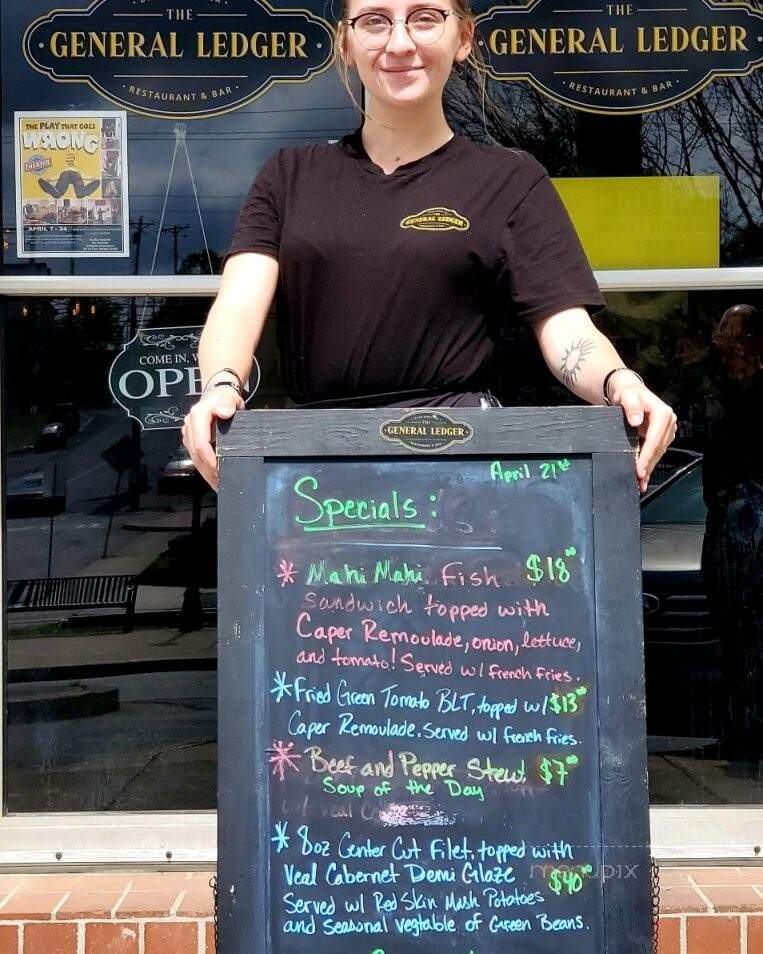 THE
GENERAL LEDGER
RESTAURANT & BAR
THE
GENERAL LEDGER
RESTAURANT & BAR
THE PLAY THAT GOES
WRONG
THEATER
APRIL 7 - 24
GENERAL LEDGER
COME IN, W
OPE
THE
GENERAL LEDGER
April 21st
Specials:
* Mahi Mahi Fish $18
Sandwich topped with
Caper Remoulade, onion, lettuce,
and tomato! Served w/ french fries.
* Fried Green Tomato BLT, topped w/ $13
Caper Remoulade. Served w/ french fries.
* Beef and Pepper Stew! $7
Soup of the Day
* 8oz Center Cut Filet, topped with
Veal Cabernet Demi Glaze $40
Served w/ Red Skin Mash Potatoes
and Seasonal vegtable of Green Beans.
menupix